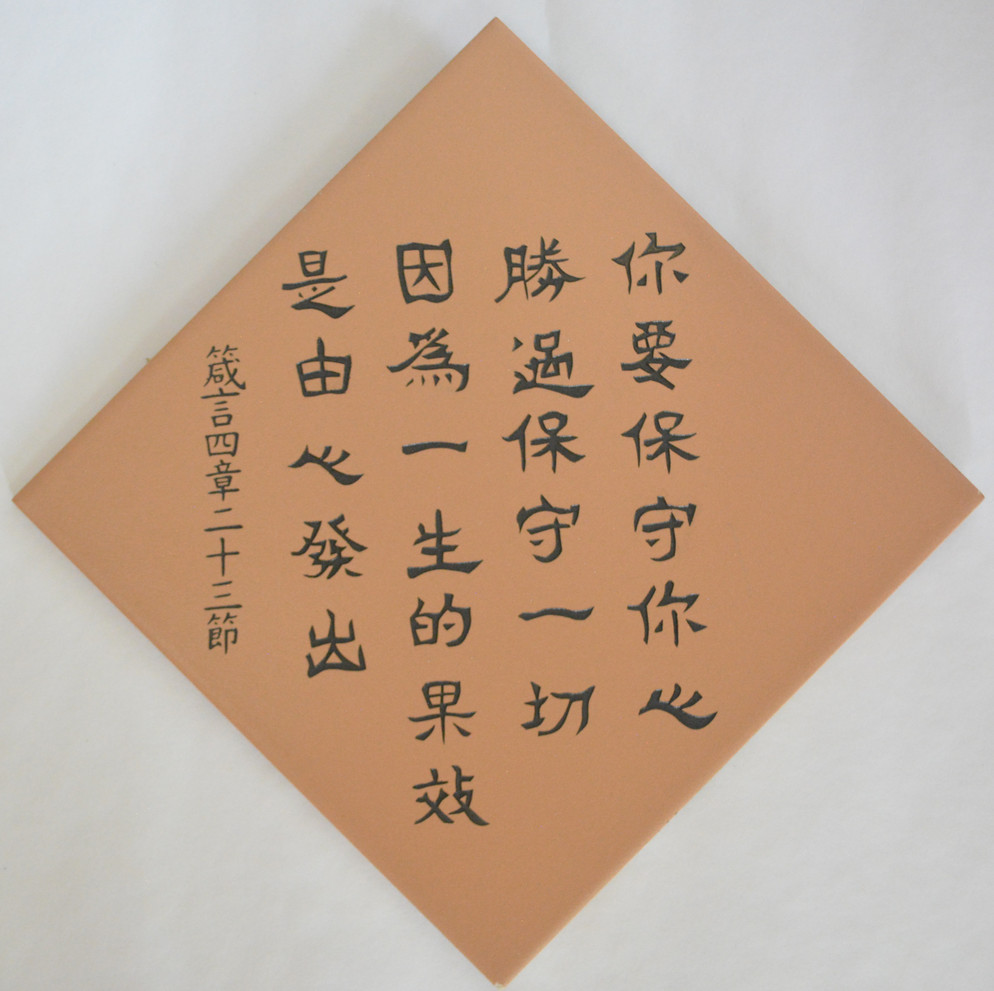 你要保守你心
勝過保守一切
因為一生的果效
是由心發出
箴言四章二十三節